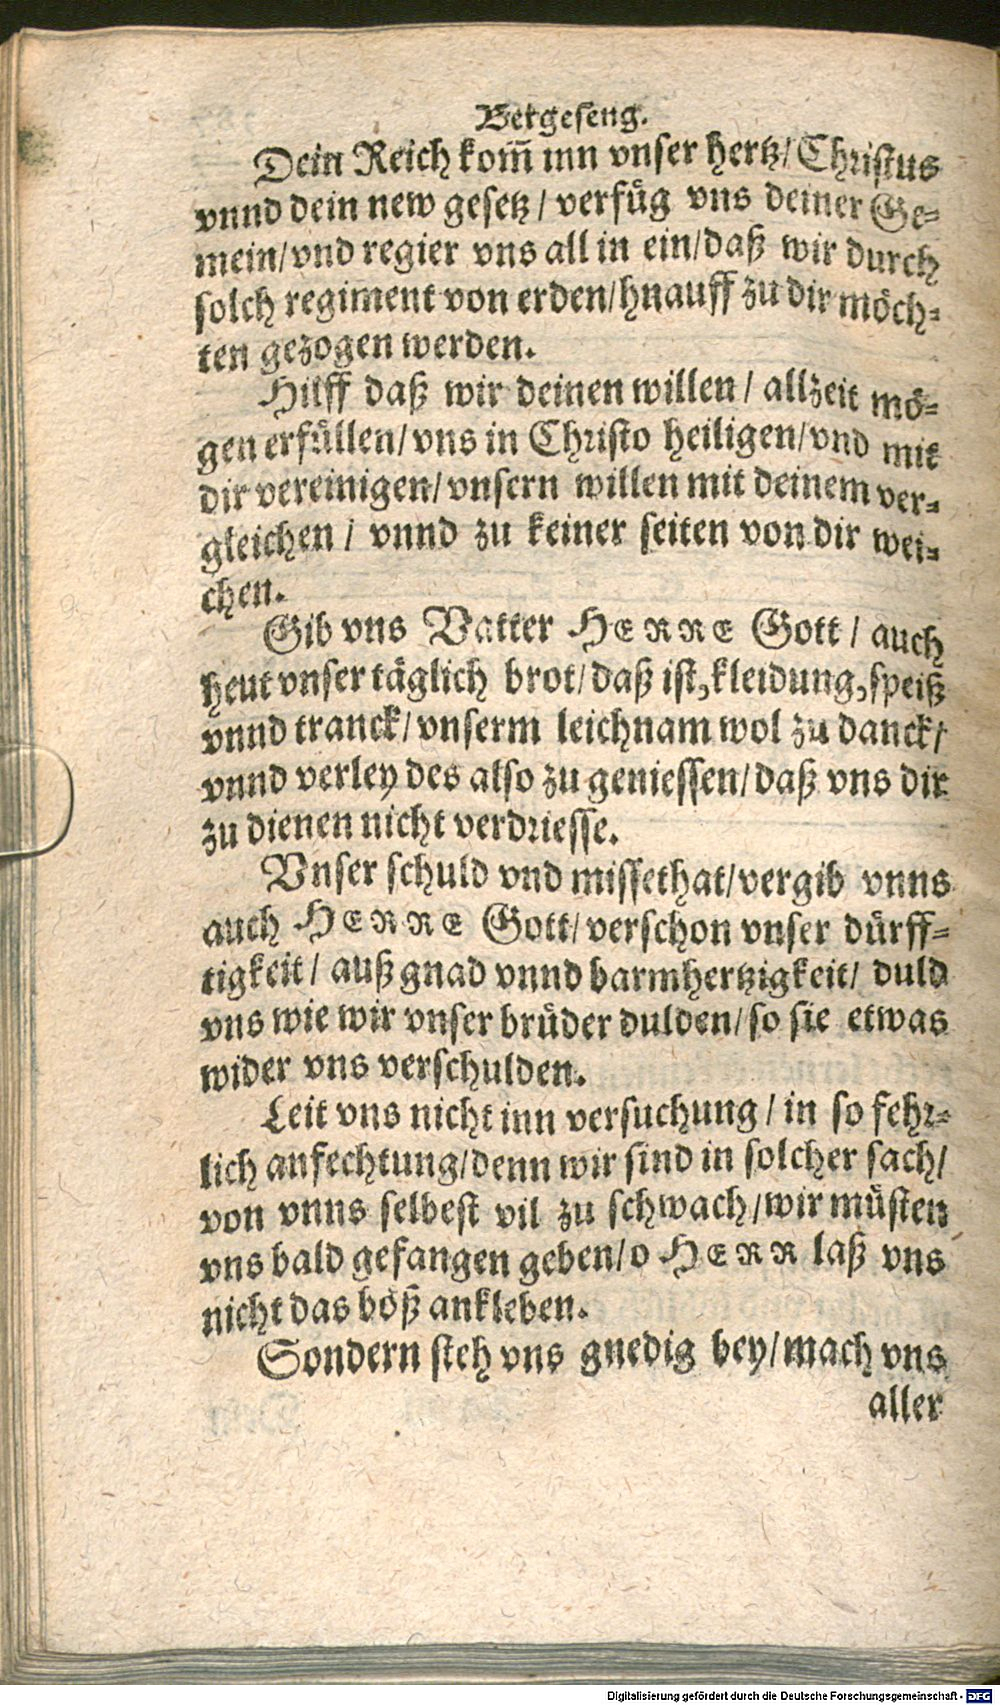 Betgeseng.
Dein Reich kom̃ inn vnser hertz/ Christus
vnnd dein new gesetz / verfüg vns deiner Ge-
mein/vnd regier vns all in ein/daß wir durch
solch regiment von erden/hnauff zu dir möch-
ten gezogen werden.
Hilff daß wir deinen willen / allzeit mö-
gen erfüllen/vns in Christo heiligen/vnd mit
dir vereinigen/vnsern willen mit deinem ver-
gleichen / vnnd zu keiner seiten von dir wei-
chen.
Gib vns Vatter HERRE Gott / auch
heut vnser täglich brot/daß ist,kleidung,speiß
vnnd tranck/vnserm leichnam wol zu danck/
vnnd verley des also zu geniessen/daß vns dir
zu dienen nicht verdriesse.
Vnser schuld vnd missethat/vergib vnns
auch HERRE Gott/verschon vnser dürff-
tigkeit/ auß gnad vnnd barmhertzigkeit/ duld
vns wie wir vnser brüder dulden/so sie etwas
wider vns verschulden.
Leit vns nicht inn versuchung / in so fehr-
lich anfechtung/denn wir sind in solcher sach/
von vnns selbest vil zu schwach/wir müsten
vns bald gefangen geben/o HERR laß vns
nicht das böß ankleben.
Sondern steh vns gnedig bey/mach vns
aller
Digitalisierung gefördert durch die Deutsche Forschungsgemeinschaft - DFG